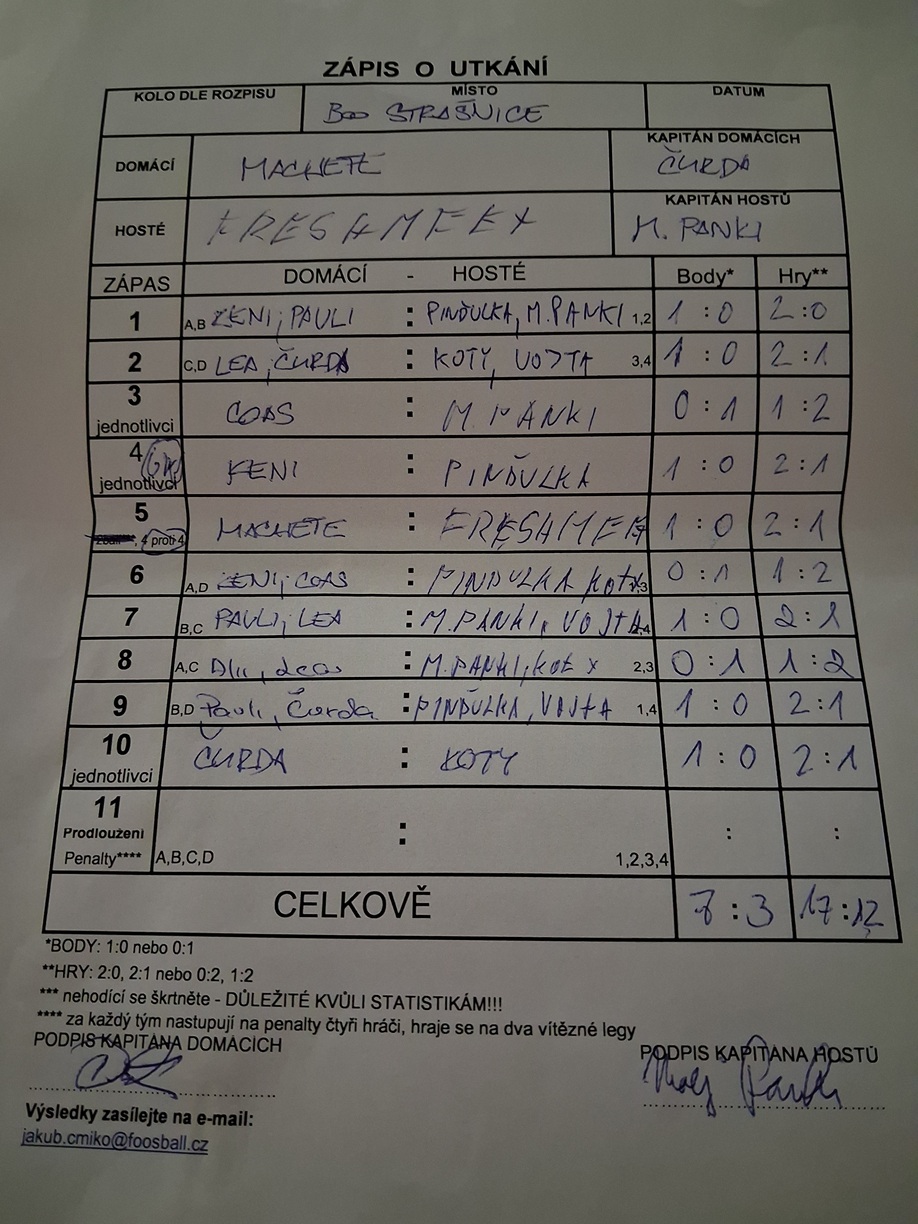 ZÁPIS O UTKÁNÍ
KOLO DLE ROZPISU MÍSTO DATUM
Boo STRAŠNICE
KAPITÁN DOMÁCÍCH
DOMÁCÍ MACHETE ČURDA
KAPITÁN HOSTŮ
HOSTÉ M. PANKI
ZÁPAS DOMÁCÍ - HOSTÉ Body* Hry**
1 A,B ŽENI, PAULI : PINĎULKA, M.PANKI 1,2 1 : 0 2 : 0
2 C,D LEA, ČURDA : KOTY, VOJTA 3,4 1 : 0 2 : 1
3 jednotlivci COAS : M. PANKI 0 : 1 1 : 2
4 jednotlivci ŽENI : PINĎULKA 1 : 0 2 : 1
5 , 4 proti 4 MACHETE : 1 : 0 2 : 1
6 A,D ŽENI, COAS : PINDULKA 0 : 1 1 : 2
7 B,C PAULI, LEA : M.PANKI, VOJTA 1 : 0 2 : 1
8 A,C : M.PANKI, 2,3 0 : 1 1 : 2
9 B,D Pauli, Čurda : PINĎULKA, VOJTA 1,4 1 : 0 2 : 1
10 jednotlivci ČURDA : KOTY 1 : 0 2 : 1
11
Prodloužení : : :
Penalty**** A,B,C,D 1,2,3,4
CELKOVĚ 7 : 3 17 : 12
*BODY: 1:0 nebo 0:1
**HRY: 2:0, 2:1 nebo 0:2, 1:2
*** nehodící se škrtněte - DŮLEŽITÉ KVŮLI STATISTIKÁM!!!
**** za každý tým nastupují na penalty čtyři hráči, hraje se na dva vítězné legy
PODPIS KAPITÁNA DOMÁCÍCH PODPIS KAPITÁNA HOSTŮ
Výsledky zasílejte na e-mail:
jakub.cmiko@foosball.cz